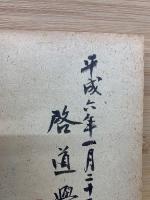 平成六年一月二十
啓道興